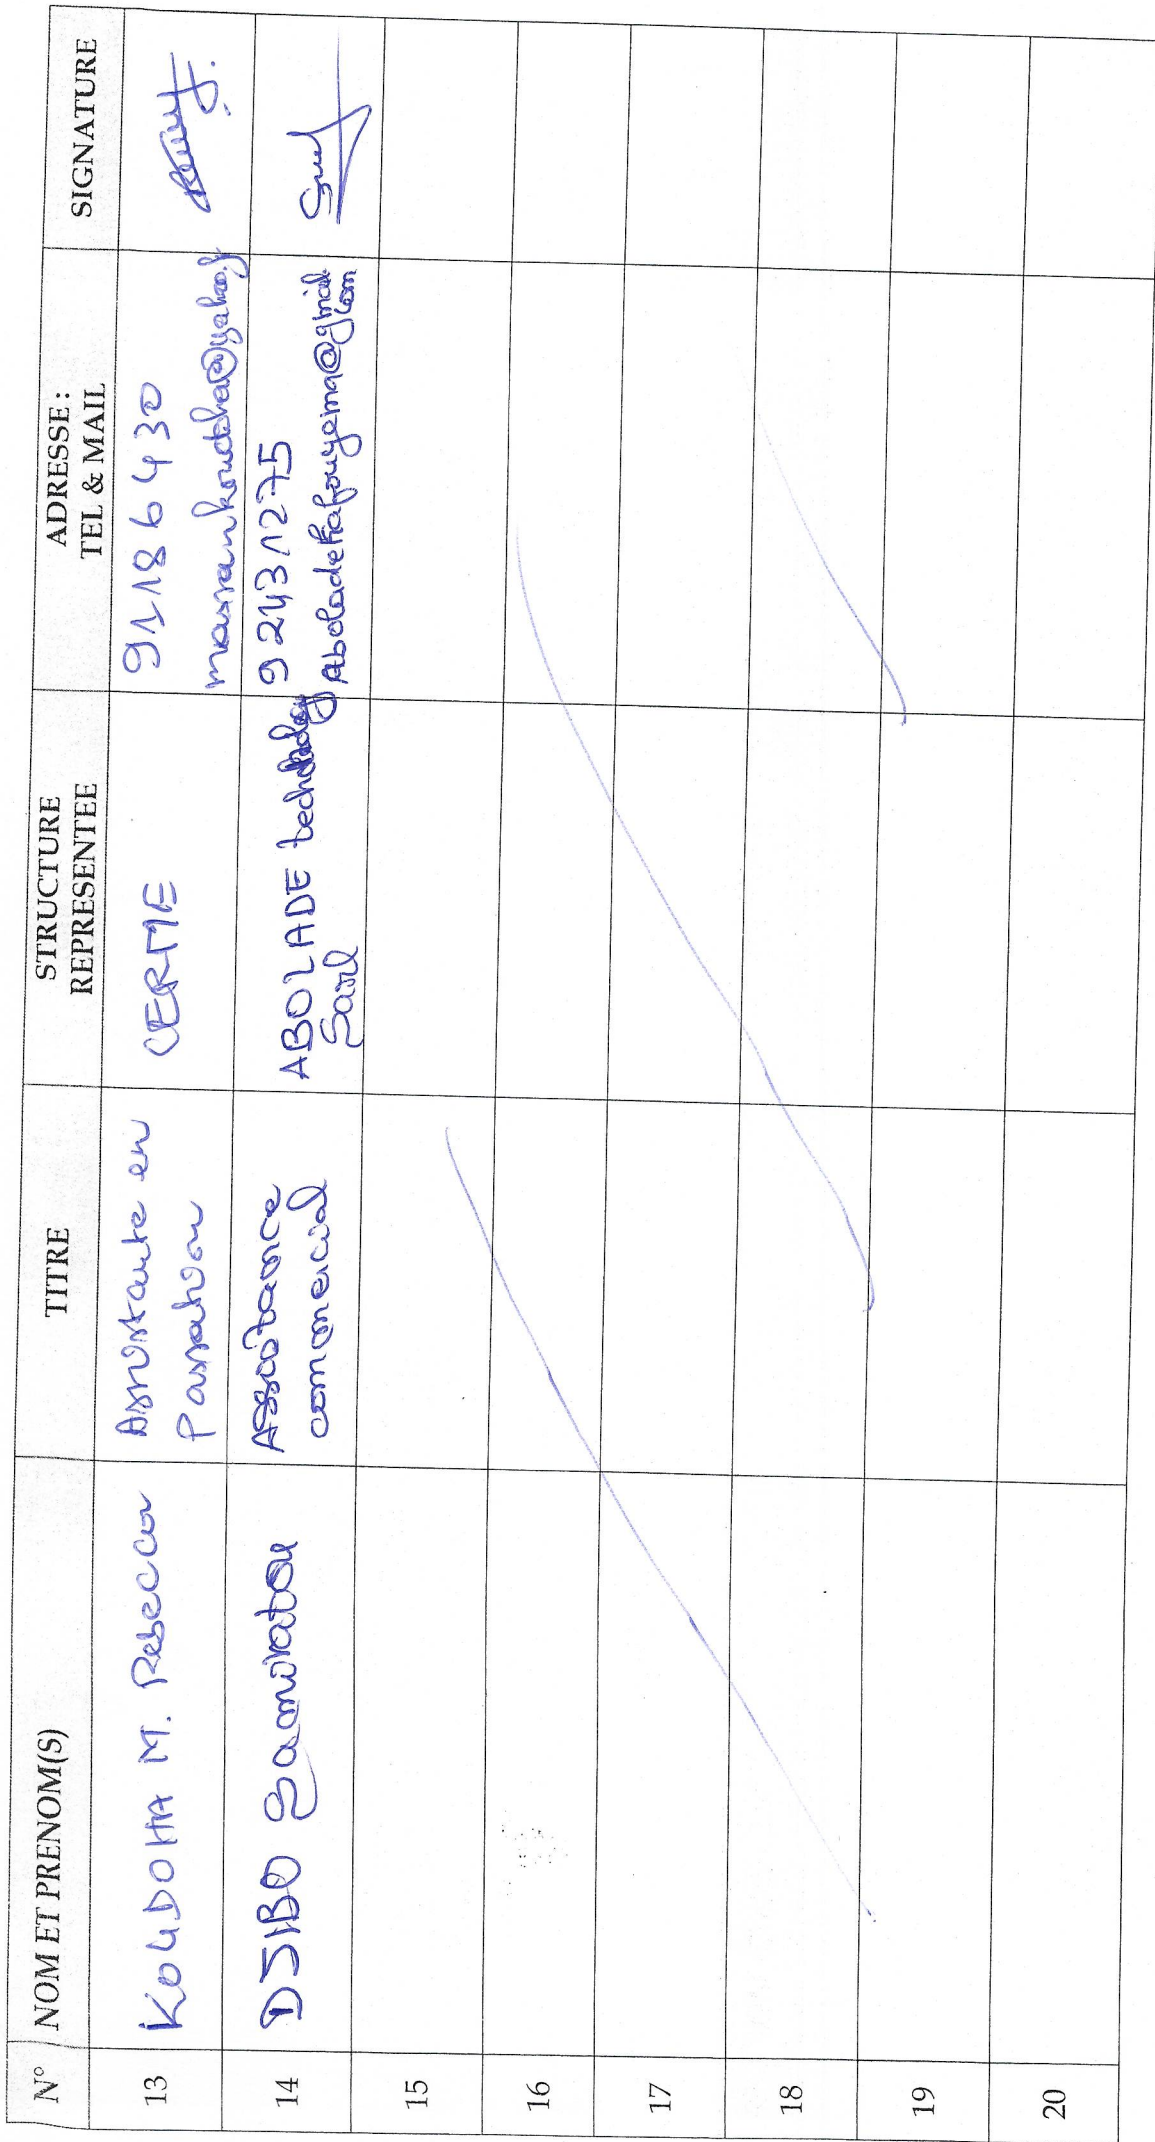 N° NOM ET PRENOM(S) TITRE STRUCTURE REPRESENTEE ADRESSE : TEL & MAIL SIGNATURE
13 KOUDOHA M. Rebecca Assistante en Passation CERME 91186430
14 DJIBO Samiratou Assistance commercial ABOLADE technology Sarl 92431275
15
16
17
18
19
20